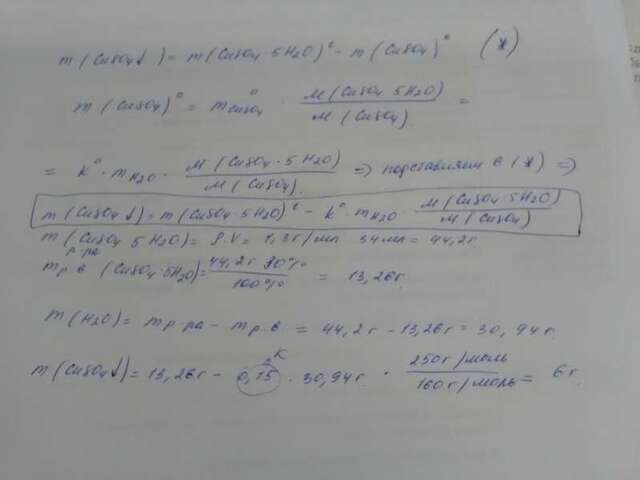 m (CuSO4↓) = m(CuSO4·5H2O)ᵗ - m (CuSO4)⁰ (*)
m (CuSO4)⁰ = m⁰CuSO4 · M(CuSO4·5H2O) / M(CuSO4) =
= K⁰·mH2O · M(CuSO4·5H2O) / M(CuSO4) => подставляем в (*) =>
m(CuSO4↓) = m(CuSO4·5H2O)ᵗ - K⁰·mH2O · M(CuSO4·5H2O) / M(CuSO4)
m (CuSO4·5H2O) = ρ·V = 1,3г/мл · 34мл = 44,2г
р-ра
mр.в (CuSO4·5H2O) = 44,2г · 30% / 100% = 13,26г
m(H2O) = mр-ра - mр.в = 44,2г - 13,26г = 30,94г
K
m(CuSO4↓) = 13,26г - 0,15 · 30,94г · 250г/моль / 160г/моль = 6г